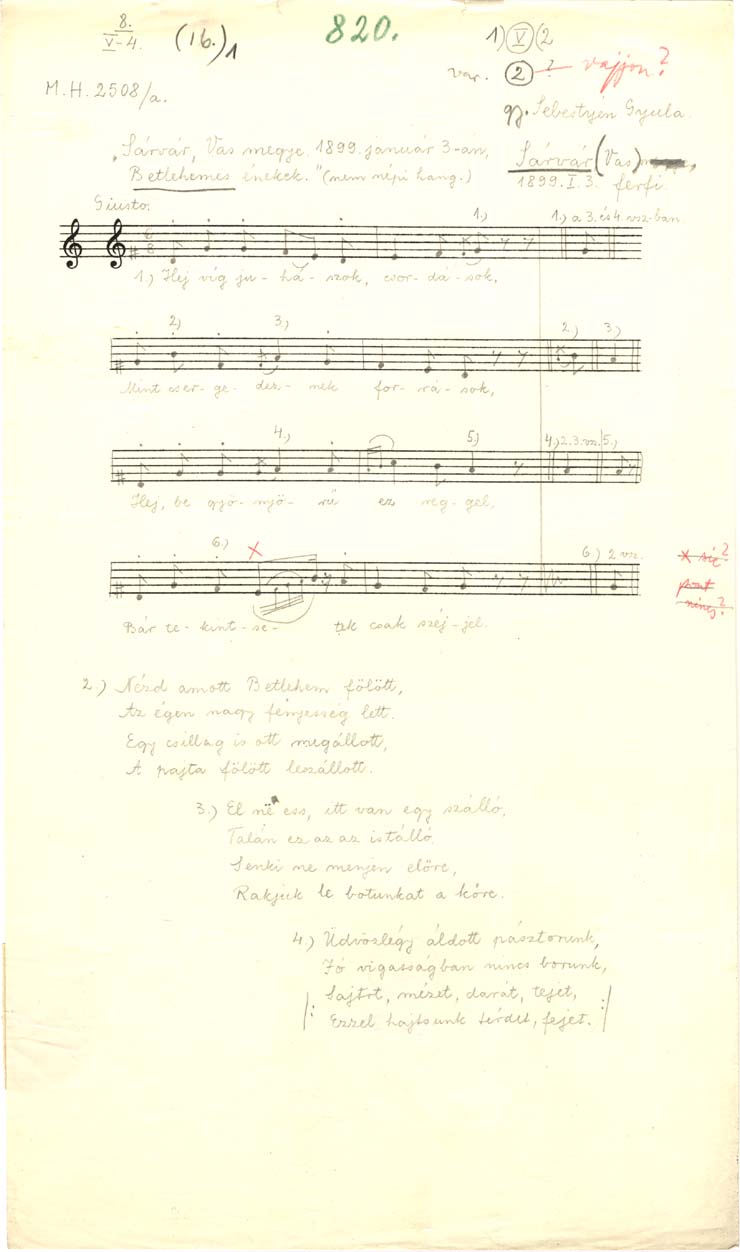 8.
V-4.
(16.)1
820.
1) V (2
var. 2 - ? vajjon?
M.H. 2508/a.
gy. Sebestyén Gyula.
„Sárvár, Vas megye. 1899. január 3-án,
Betlehemes énekek.” (nem népi hang.)
Sárvár (Vas)
1899. I. 3. férfi.
Giusto.
1.) 1.) a 3. és 4. vsz-ban
6
8
1.) Hej víg ju-há-szok, csor-dá-sok,
2) 3.) 2.) 3.)
Mint cser-ge-dez-nek for-rá-sok,
4.) 5.) 4.) 2.3. vsz. 5.)
Hej, be gyö-nyö-rű ez reg-gel,
6.) x 6.) 2 vsz. x sic?
pont
nincs?
Bár te-kint-se-tek csak széj-jel.
2.) Nézd amott Betlehem fölött,
Az égen nagy fényesség lett.
Egy csillag is ott megállott,
A pajta fölött leszállott.
3.) El në ess, itt van egy szálló,
Talán ez az az istálló.
Senki ne menjen előre,
Rakjuk le botunkat a kőre.
4.) Üdvözlégy áldott pásztorunk,
Jó vigasságban nincs borunk,
|: Sajtrt, mézet, darát, tejet,
Ezzel hajtsunk térdet, fejet. :|